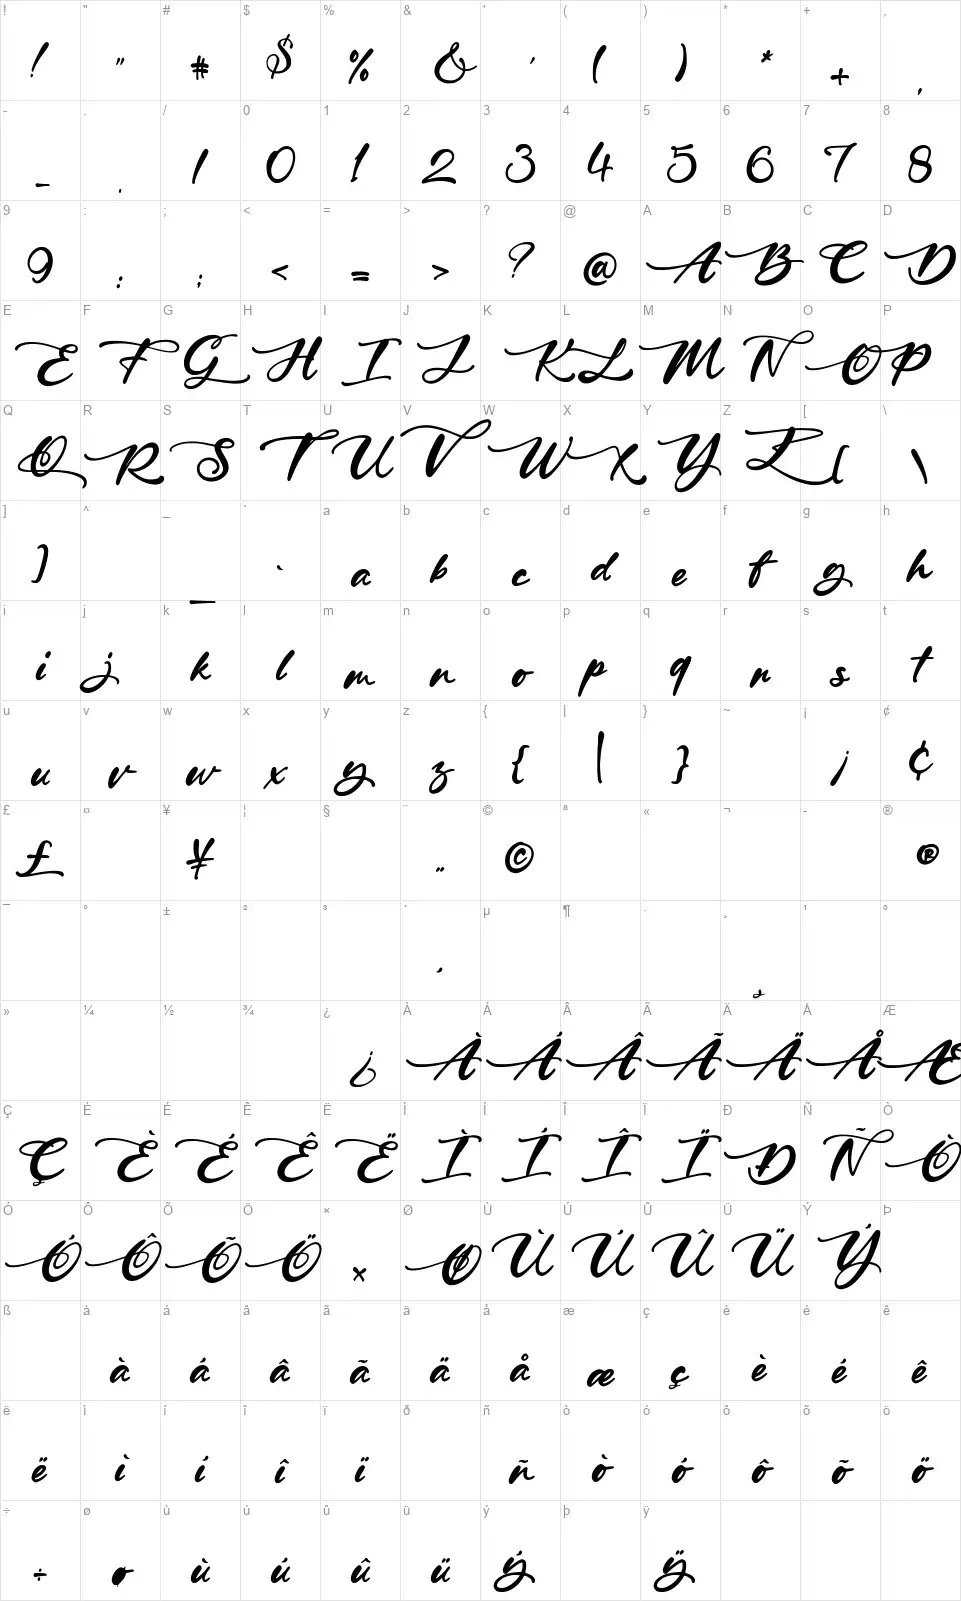 ! " # $ % & ' ( ) * + ,
! " # $ % & ' ( ) * + ,
- . / 0 1 2 3 4 5 6 7 8
- . / 0 1 2 3 4 5 6 7 8
9 : ; < = > ? @ A B C D
9 : ; < = > ? @ A B C D
E F G H I J K L M N O P
E F G H I J K L M N O P
Q R S T U V W X Y Z [ \
Q R S T U V W X Y Z [ \
] ^ _ ` a b c d e f g h
] _ ` a b c d e f g h
i j k l m n o p q r s t
i j k l m n o p q r s t
u v w x y z { | } ~ ¡ ¢
u v w x y z { | } ¡ ¢
£ ¤ ¥ ¦ § ¨ © ª « ¬ - ®
£ ¥ ¨ © ®
¯ ° ± ² ³ ´ µ ¶ · ¸ ¹ º
´ ¸
» ¼ ½ ¾ ¿ À Á Â Ã Ä Å Æ
¿ À Á Â Ã Ä Å Æ
Ç È É Ê Ë Ì Í Î Ï Ð Ñ Ò
Ç È É Ê Ë Ì Í Î Ï Ð Ñ Ò
Ó Ô Õ Ö × Ø Ù Ú Û Ü Ý Þ
Ó Ô Õ Ö × Ø Ù Ú Û Ü Ý
ß à á â ã ä å æ ç è é ê
à á â ã ä å æ ç è é ê
ë ì í î ï ð ñ ò ó ô õ ö
ë ì í î ï ñ ò ó ô õ ö
÷ ø ù ú û ü ý þ ÿ
÷ ø ù ú û ü ý ÿ